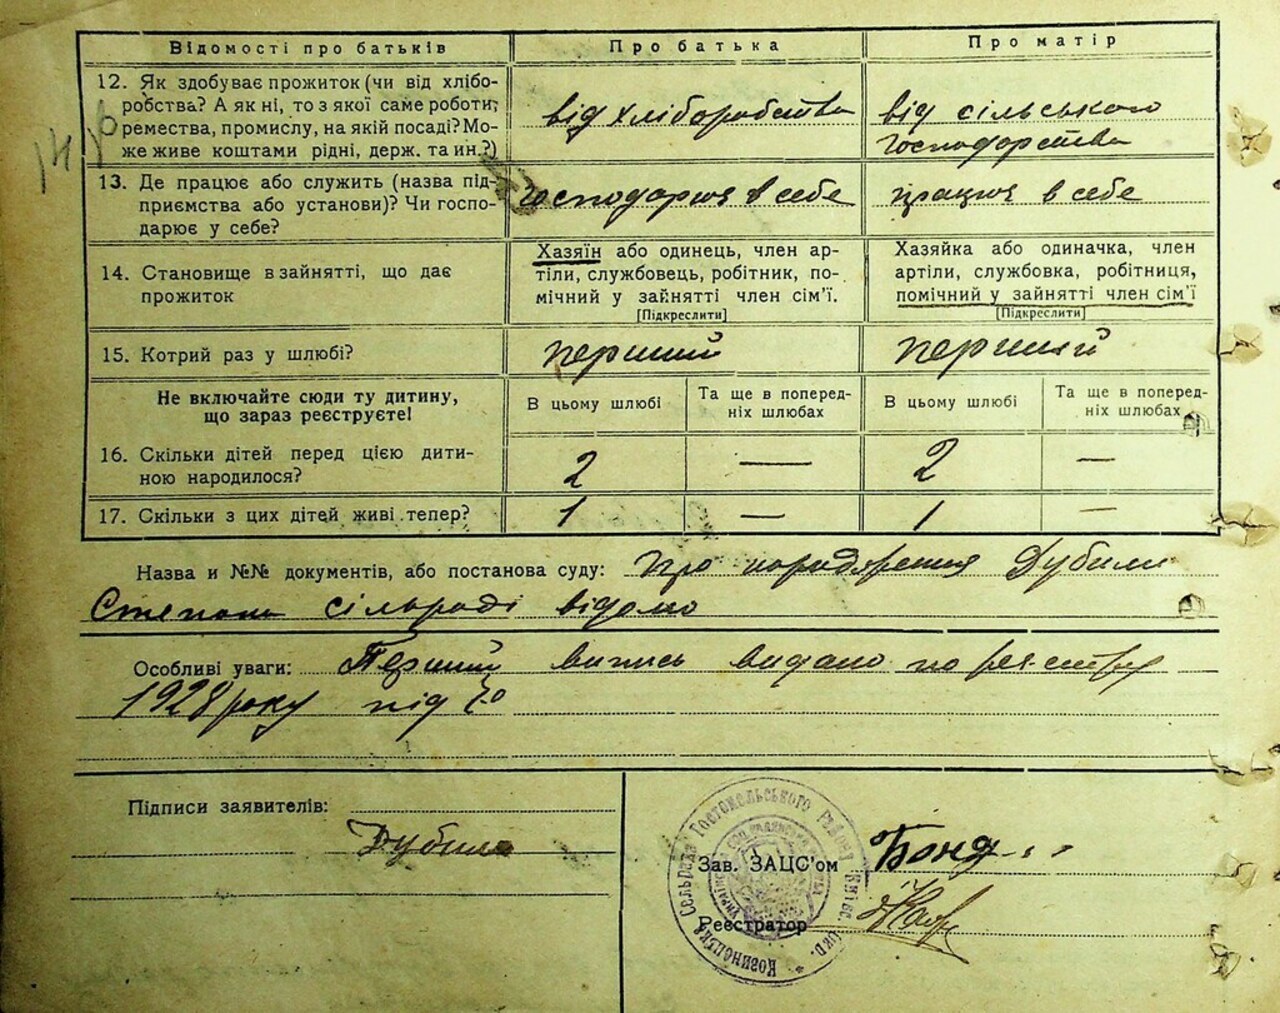 Відомості про батьків
Про батька
Про матір
12. Як здобуває прожиток (чи від хлібо-
робства? А як ні, то з якої саме роботи,
ремества, промислу, на якій посаді? Мо-
же живе коштами рідні, держ. та ин.?)
від хліборобства
від сільського
господарства
13. Де працює або служить (назва під-
приємства або установи)? Чи госпо-
дарює у себе?
господарює в себе
працює в себе
14. Становище в зайнятті, що дає
прожиток
Хазяїн або одинець, член ар-
тіли, службовець, робітник, по-
мічний у зайнятті член сім'ї.
[Підкреслити]
Хазяйка або одиначка, член
артіли, службовка, робітниця,
помічний у зайнятті член сім'ї
[Підкреслити]
15. Котрий раз у шлюбі?
перший
перший
Не включайте сюди ту дитину,
що зараз реєструєте!
В цьому шлюбі
Та ще в поперед-
ніх шлюбах
В цьому шлюбі
Та ще в поперед-
ніх шлюбах
16. Скільки дітей перед цією дити-
ною народилося?
2
—
2
—
17. Скільки з цих дітей живі тепер?
1
—
1
—
Назва и №№ документів, або постанова суду: Про Дубили
Степана сільраді відомо
Особливі уваги: Перший випись видано по реєстру
1928 року під
Підписи заявителів:
Дубила
Сельрада Гостомельського району Київ. окр.
Зав. ЗАЦС'ом
Реєстратор